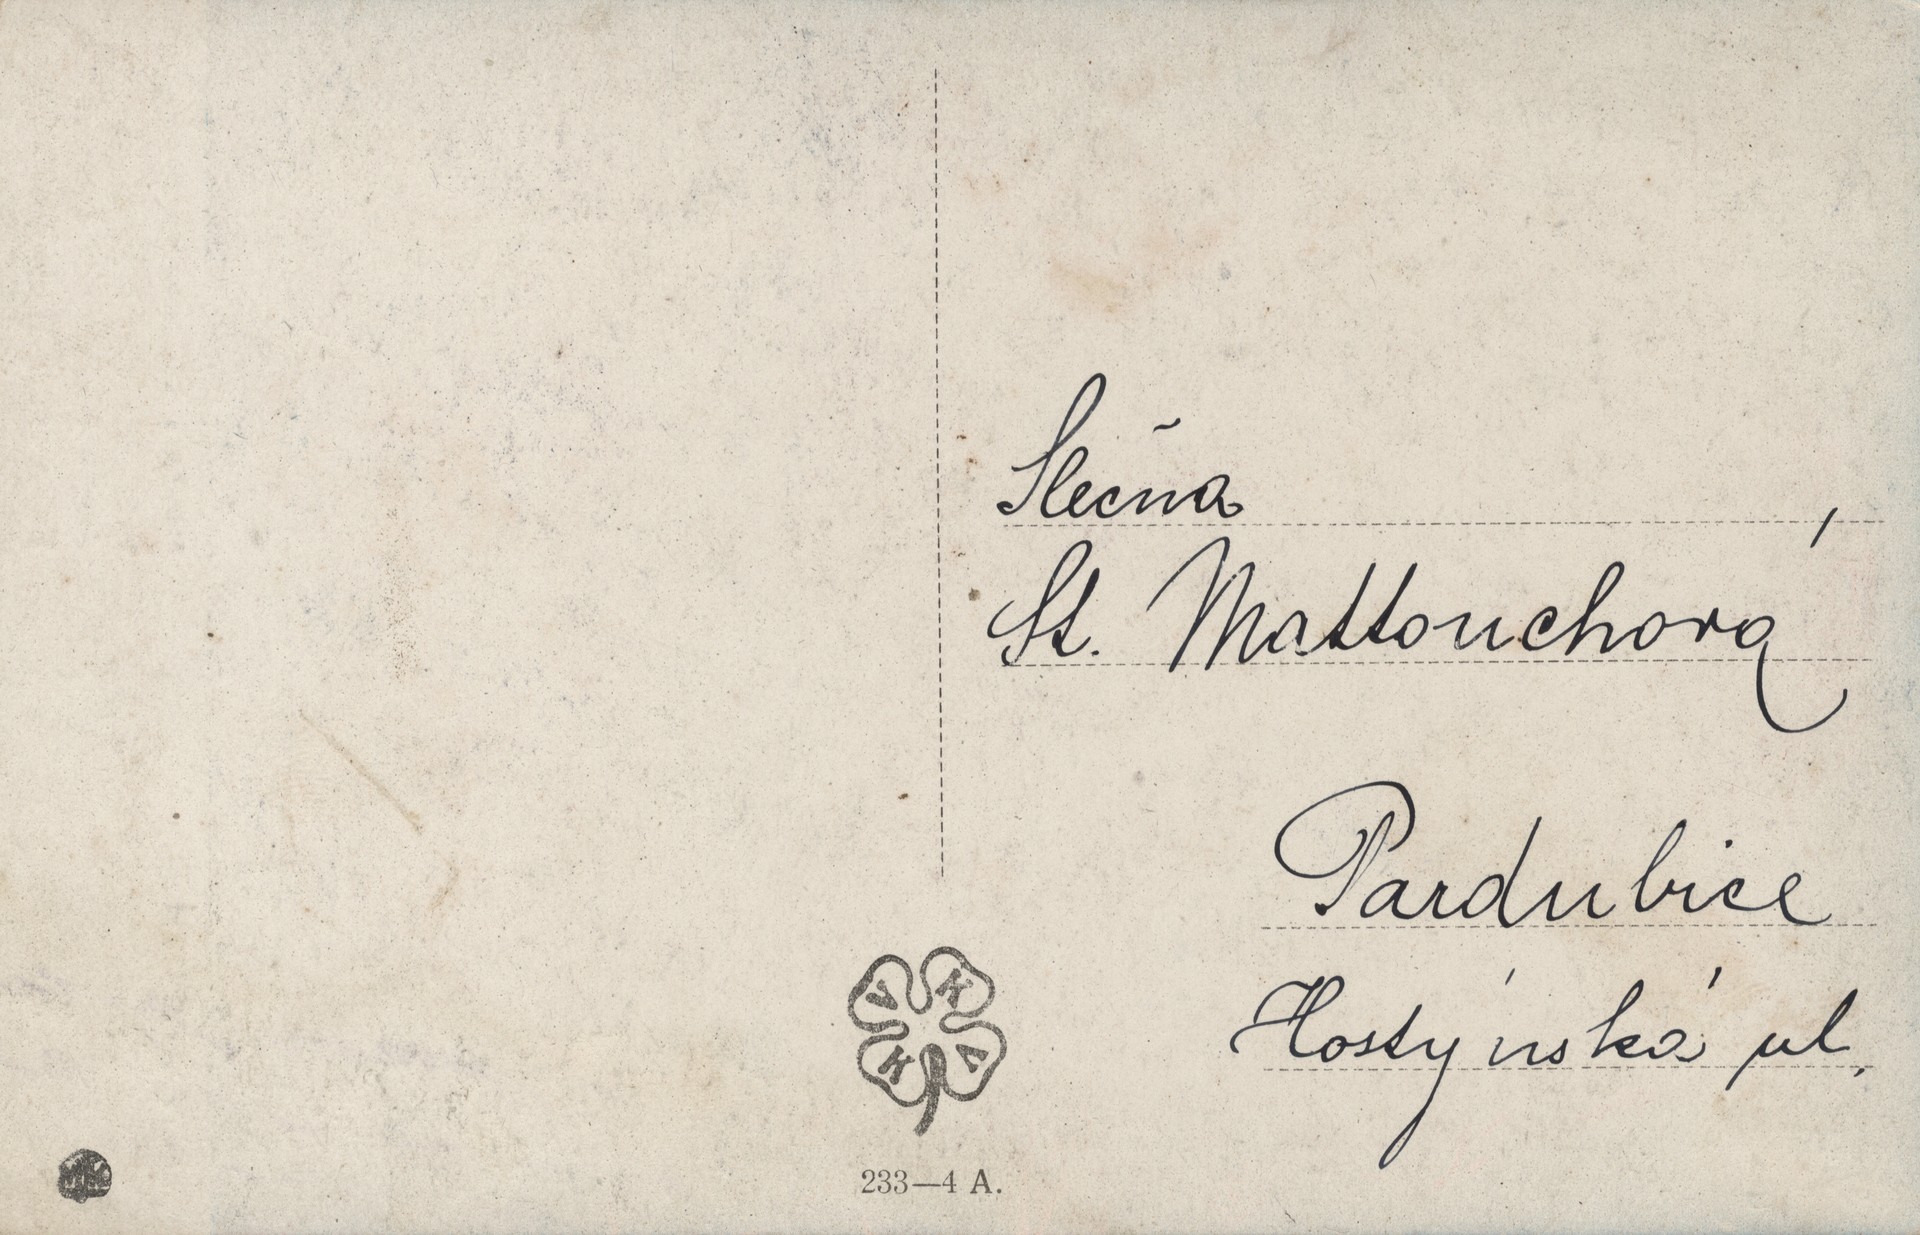 Slečna
St. Mattouchová
Pardubice
Hostýnská ul.
V K
K A
233—4 A.